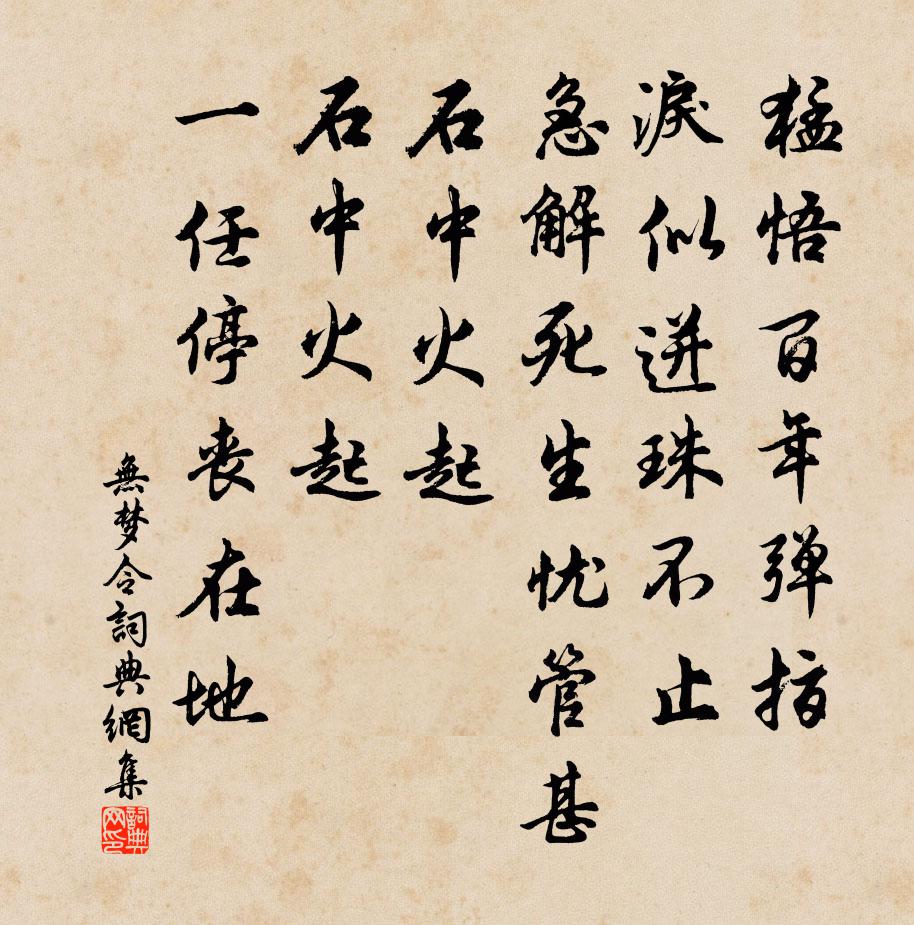 猛悟百年弹指
淚似迸珠不止
急解死生忧管甚
石中火起
石中火起
一任停丧在地
無梦令詞典網集
詞典网印